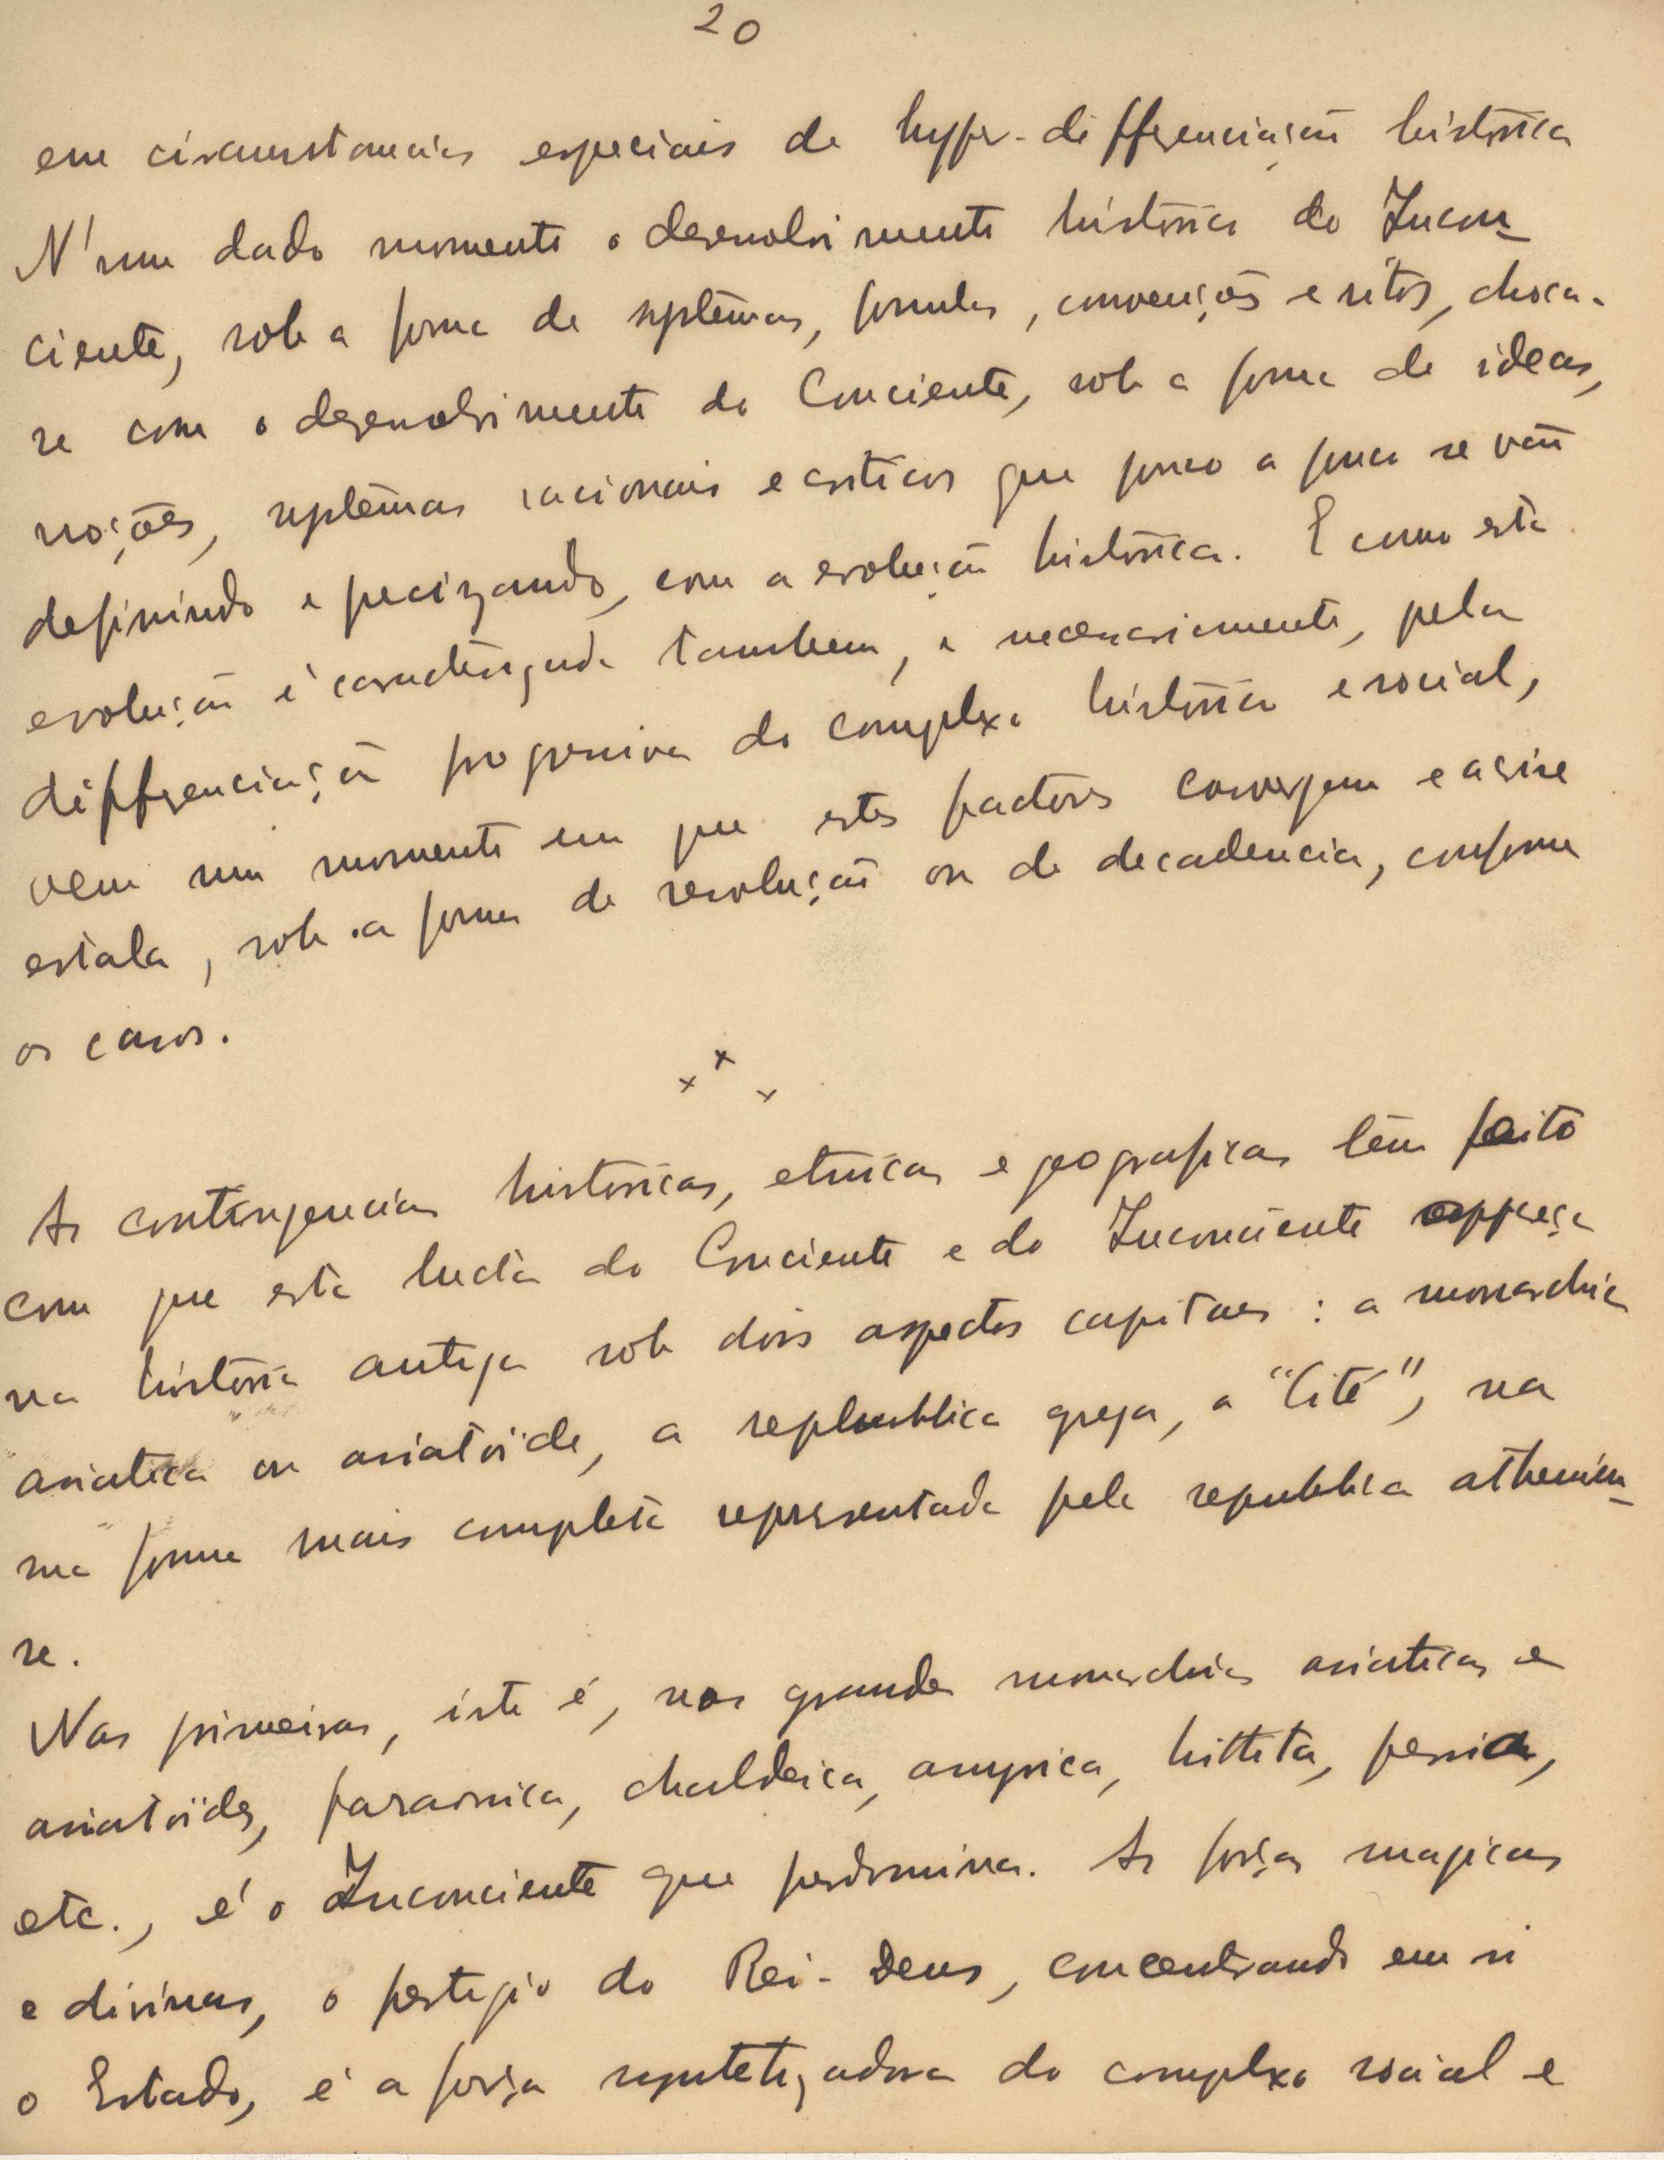 20
em circumstancias especiais de hyper-differenciação historica
N'um dado momento o desenvolvimento historico do Incon-
ciente, sob a forma de systêmas, formulas, convenções e ritos, choca-
se com o desenvolvimento do Conciente, sob a forma de ideas,
noções, systêmas racionais e criticos que pouco a pouco se vão
definindo e precizando, com a evolução historica. E como esta
evolução é caracterizada tambem, e necessariamente, pela
differenciação progressiva do complexo historico e social,
vem um momento em que estes factores convergem e a crise
estala, sob a forma de revolução ou de decadencia, conforme
os casos.
x x x
As contingencias historicas, etnicas e geograficas têm feito
com que esta lucta do Conciente e do Inconciente appareça
na história antiga sob dois aspectos capitaes : a monarchia
asiatica ou asiatoïde, a republica grega, a "Cité", na
sua forma mais completa representada pela republica athenien-
se.
Nas primeiras, isto é, nas grandes monarchias asiaticas e
asiatoïdes, faraonica, chaldaica, assyrica, hittita, persica,
etc., é o Inconciente que predomina. As forças magicas
e divinas, o prestigio do Rei-Deus, concentrando em si
o Estado, é a força syntetizadora do complexo social e